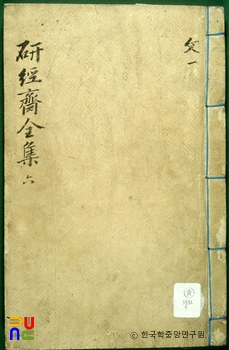 研經齋全集 六
文一
© 한국학중앙연구원